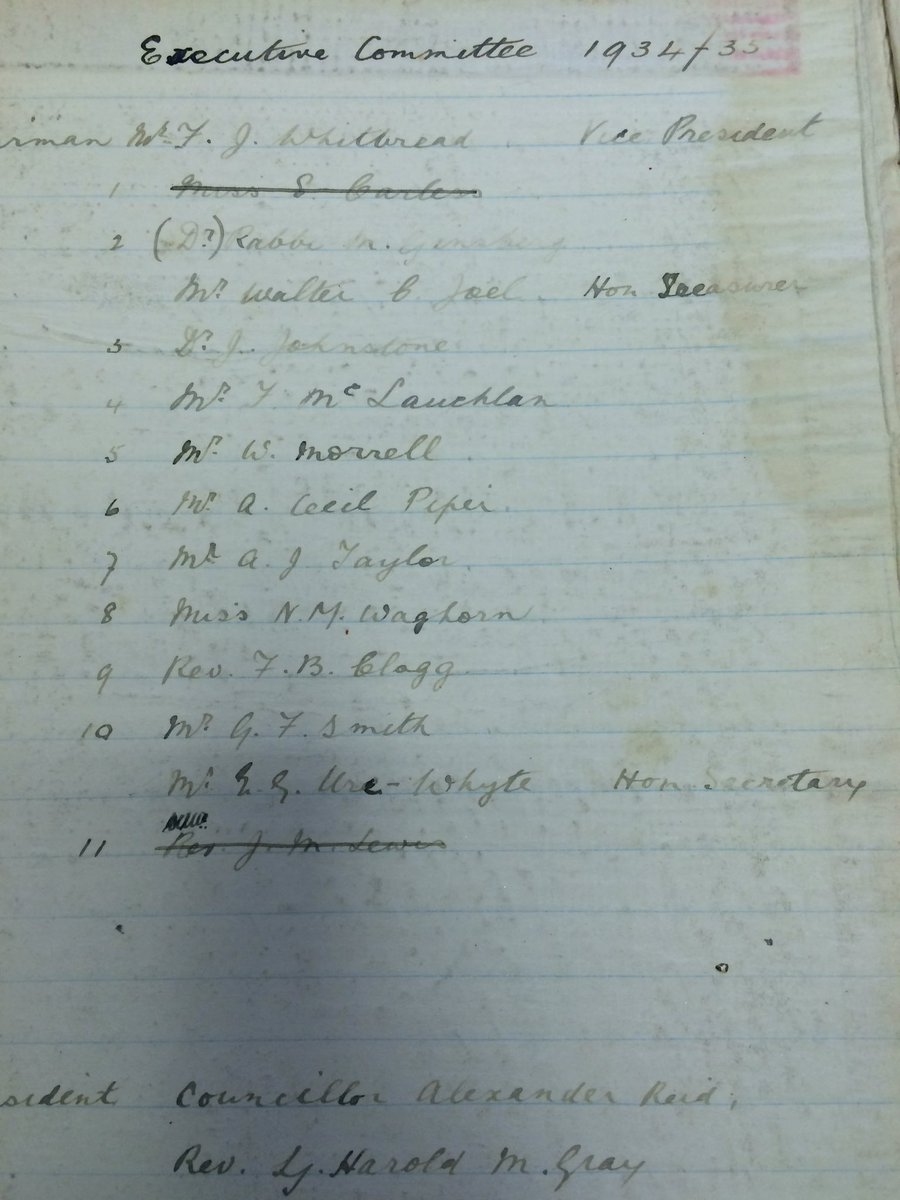 Executive Committee 1934/35
rman Mr F. J. Whitbread Vice President
1 Miss E. Carless
2 (Dr) Rabbi M. Ginsberg
Mr Walter C Joel. Hon Treasurer
3 Dr J. Johnstone
4 Mr F McLauchlan
5 Mr W. Morrell
6 Mr A. Cecil Piper.
7 Mr A. J Taylor.
8 Miss N. M. Waghorn
9 Rev. F. B. Clogg
10 Mr G. F. Smith
Mr E. G. Ure-Whyte Hon Secretary
11 Rev J. M. Lewis
sident Councillor Alexander Reid,
Rev. Harold M. Gray